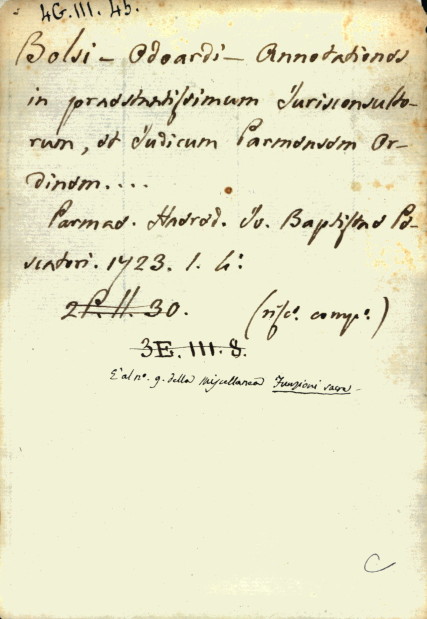 4G.III.45.
Bolsi - Odoardi - Annotationes
in praestantissimum Jurisconsulto-
rum, et Judicum Parmensem Or-
dinem....
Parmae. Haered. Jo. Baptistae Pe-
scatori. 1723. 1. 4°.
2P.II.30. (misc. comp.)
3E.III.8.
È al n°. 9. della Miscellanea Funzioni sacre
C